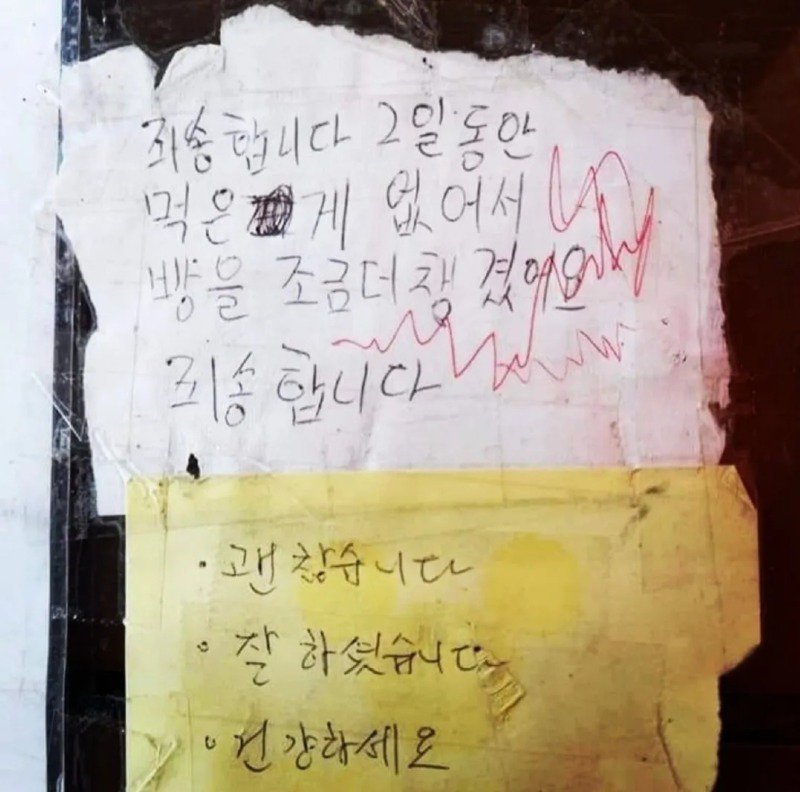 죄송합니다 2일동안
먹은 게 없어서
빵을 조금더 챙겼어요
죄송합니다
• 괜찮습니다
• 잘 하셨습니다
• 건강하세요